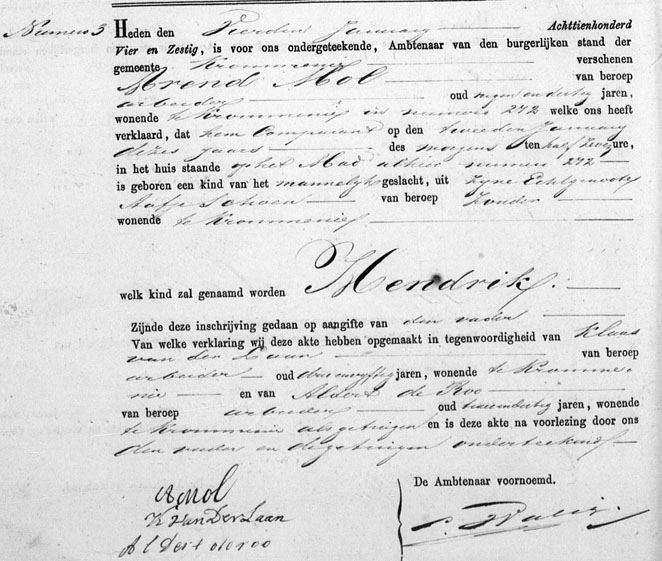 Numero 3 Heden den Vierden January Achttienhonderd
Vier en Zestig, is voor ons ondergeteekende, Ambtenaar van den burgerlijken stand der
gemeente Krommenie verschenen
Arend Mol van beroep
arbeider oud negen en dertig jaren,
wonende te Krommenie in numero 272 welke ons heeft
verklaard, dat hem Comparant op den tweeden January
dezes jaars des morgens ten half zeven ure,
in het huis staande op het Pad alhier numero 272
is geboren een kind van het mannelijk geslacht, uit zyne Echtgenoote
Aafje Schoen van beroep Zonder
wonende te Krommenie
welk kind zal genaamd worden Hendrik.
Zijnde deze inschrijving gedaan op aangifte van den vader
Van welke verklaring wij deze akte hebben opgemaakt in tegenwoordigheid van Klaas
van der Laan van beroep
arbeider oud jaren, wonende te Kromme-
nie en van Aldert de Roo
van beroep arbeider oud jaren, wonende
te Krommenie als getuigen en is deze akte na voorlezing door ons
den vader en de getuigen onderteekend
De Ambtenaar voornoemd.
A Mol
K Van Der Laan
Aldert de roo